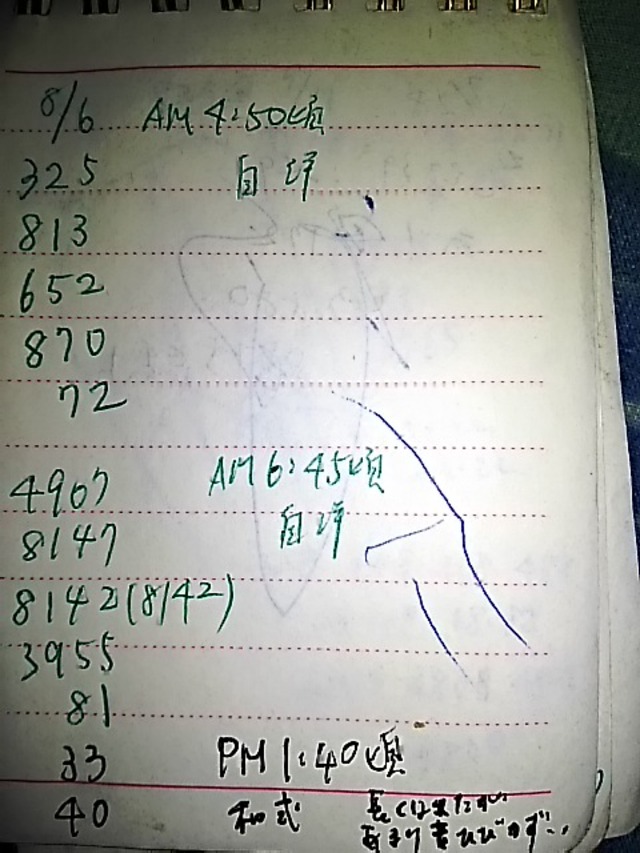 8/6 AM 4:50頃
325 自坪
813
652
870
72
4967 AM 6:45頃
8147 自坪
8142(8142)
3955
81
33 PM 1:40頃
40 和式